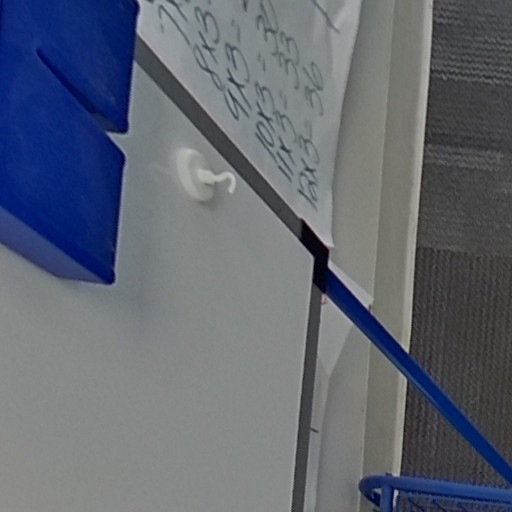 7x
8x3
9x3 =
10x3 = 30
11x3 = 33
12x3 = 36